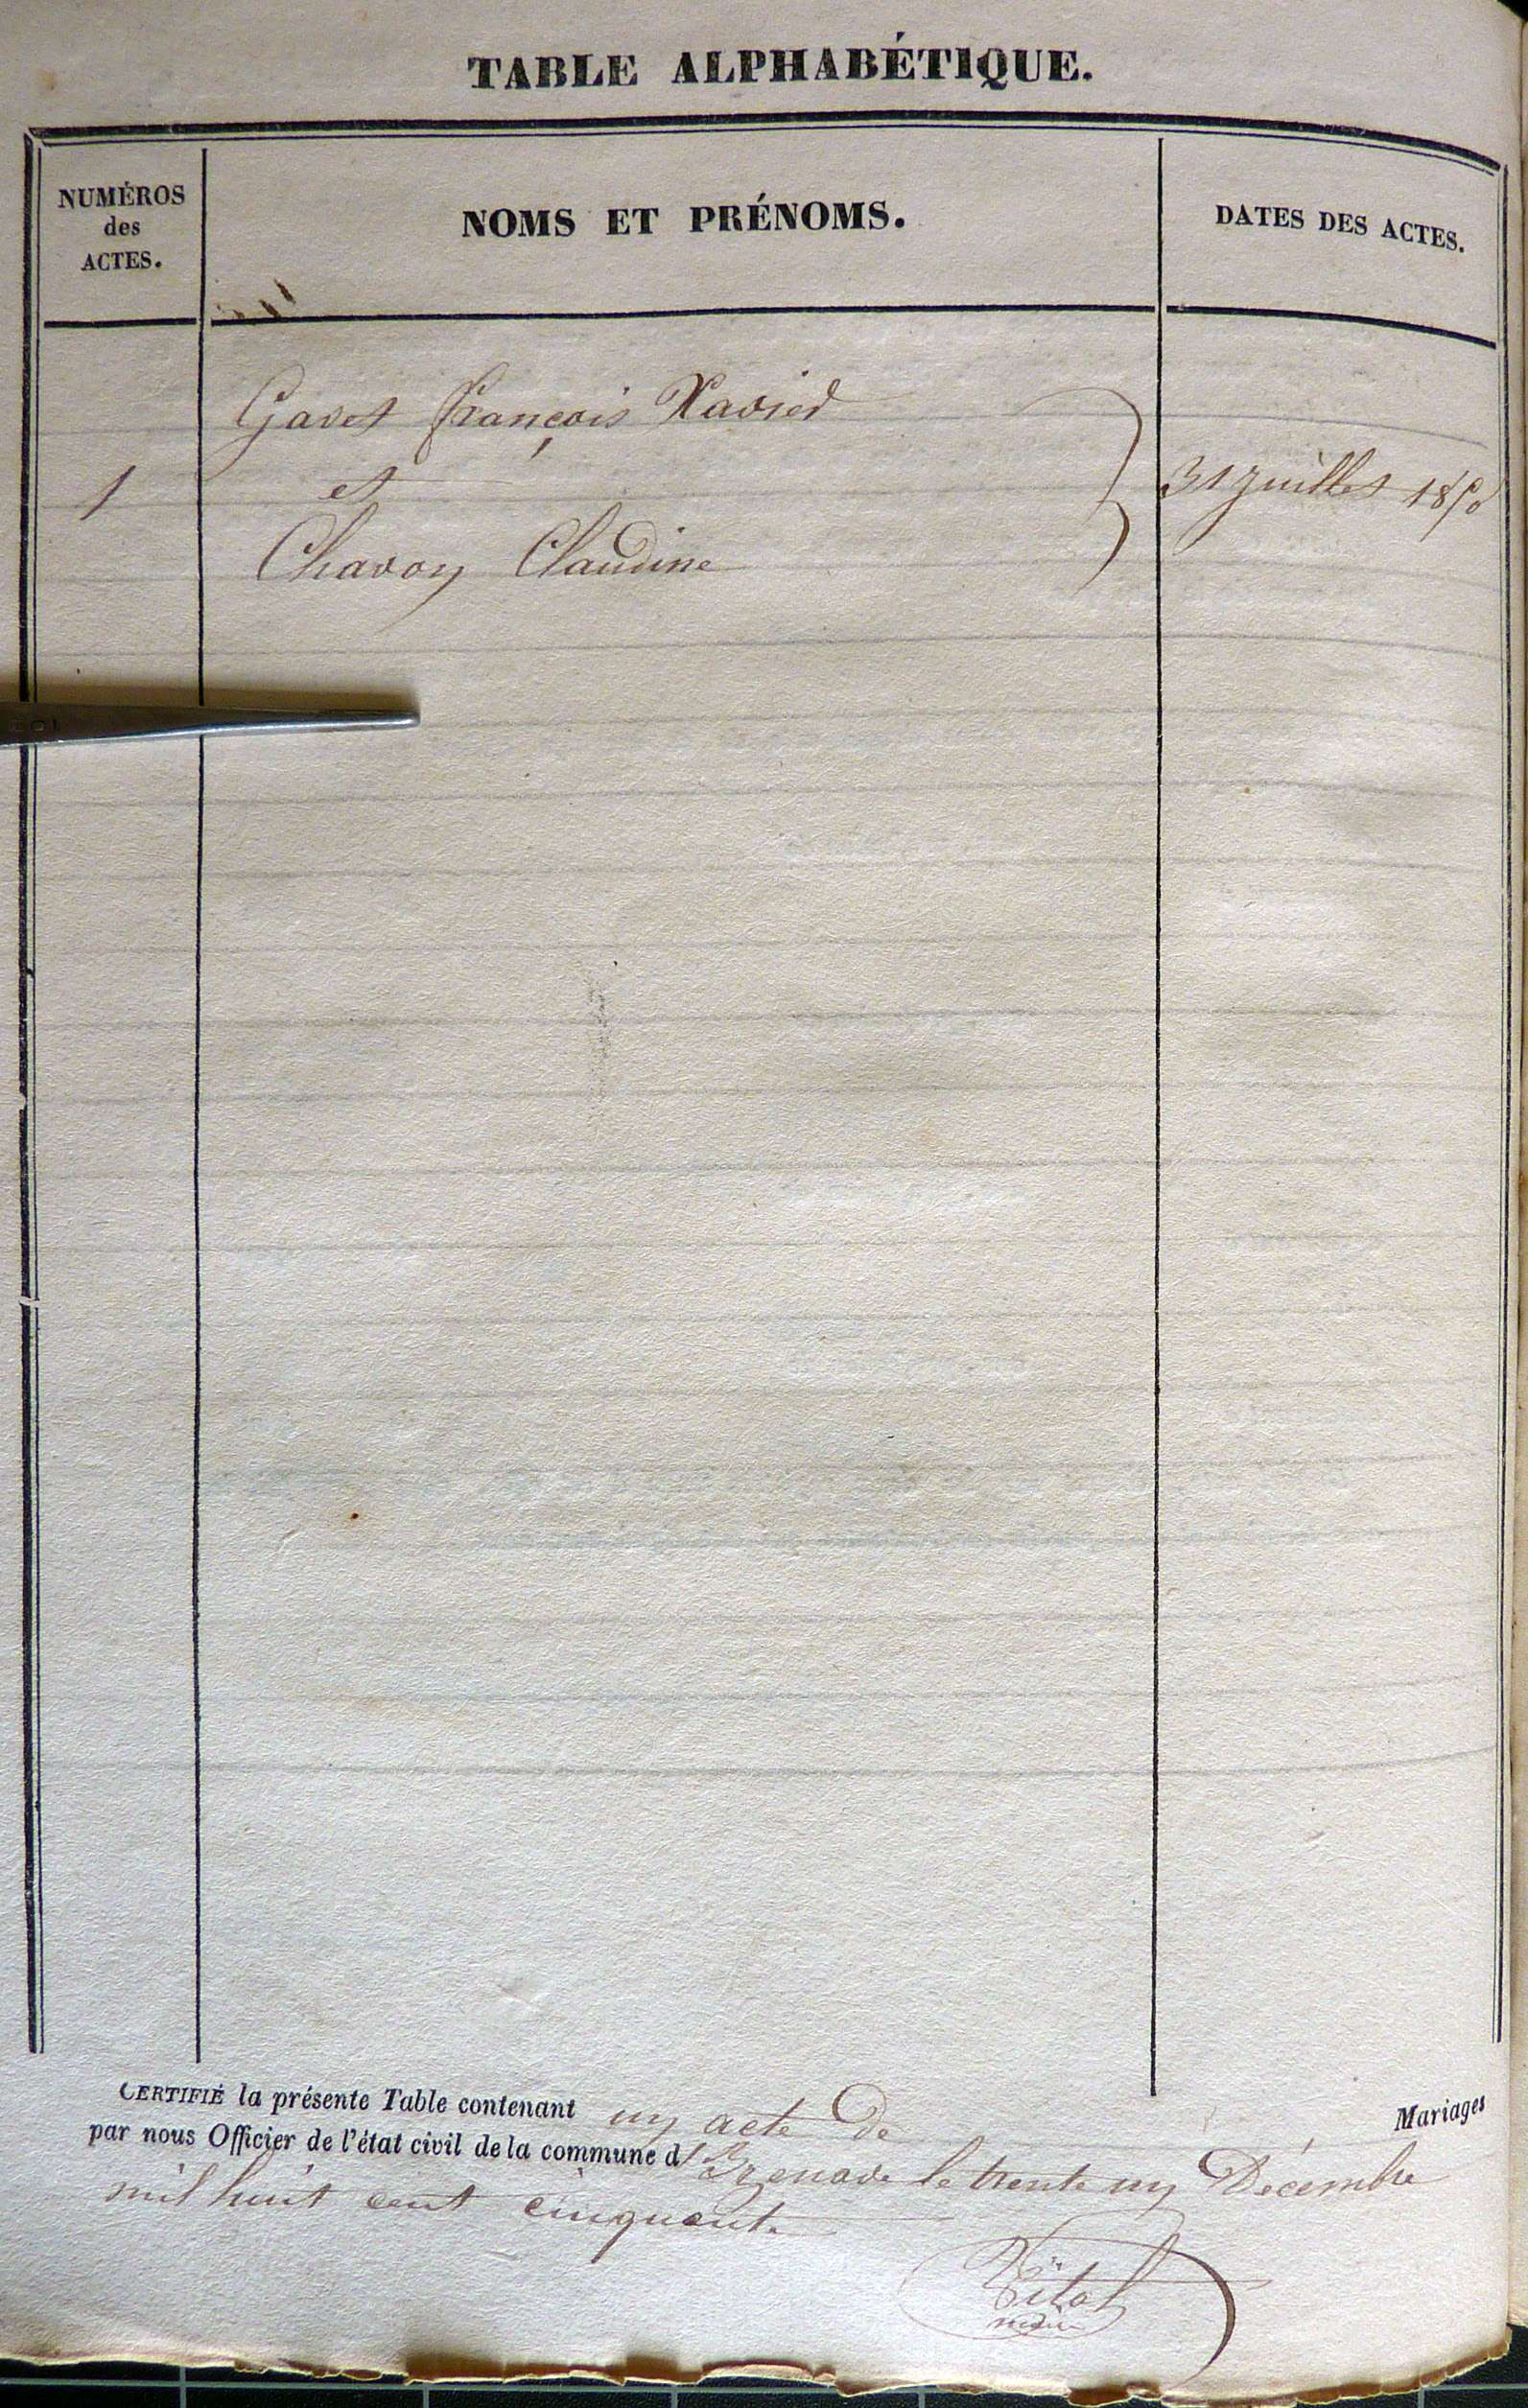 TABLE ALPHABÉTIQUE.
NUMÉROS
des
ACTES.
NOMS ET PRÉNOMS.
DATES DES ACTES.
Gavet françois Xavier
1
et
31 juillet 1850
Chavon Claudine
CERTIFIÉ la présente Table contenant un acte de Mariages
par nous Officier de l'état civil de la commune d' le trente un Décembre
mil huit cent cinquante
Vital